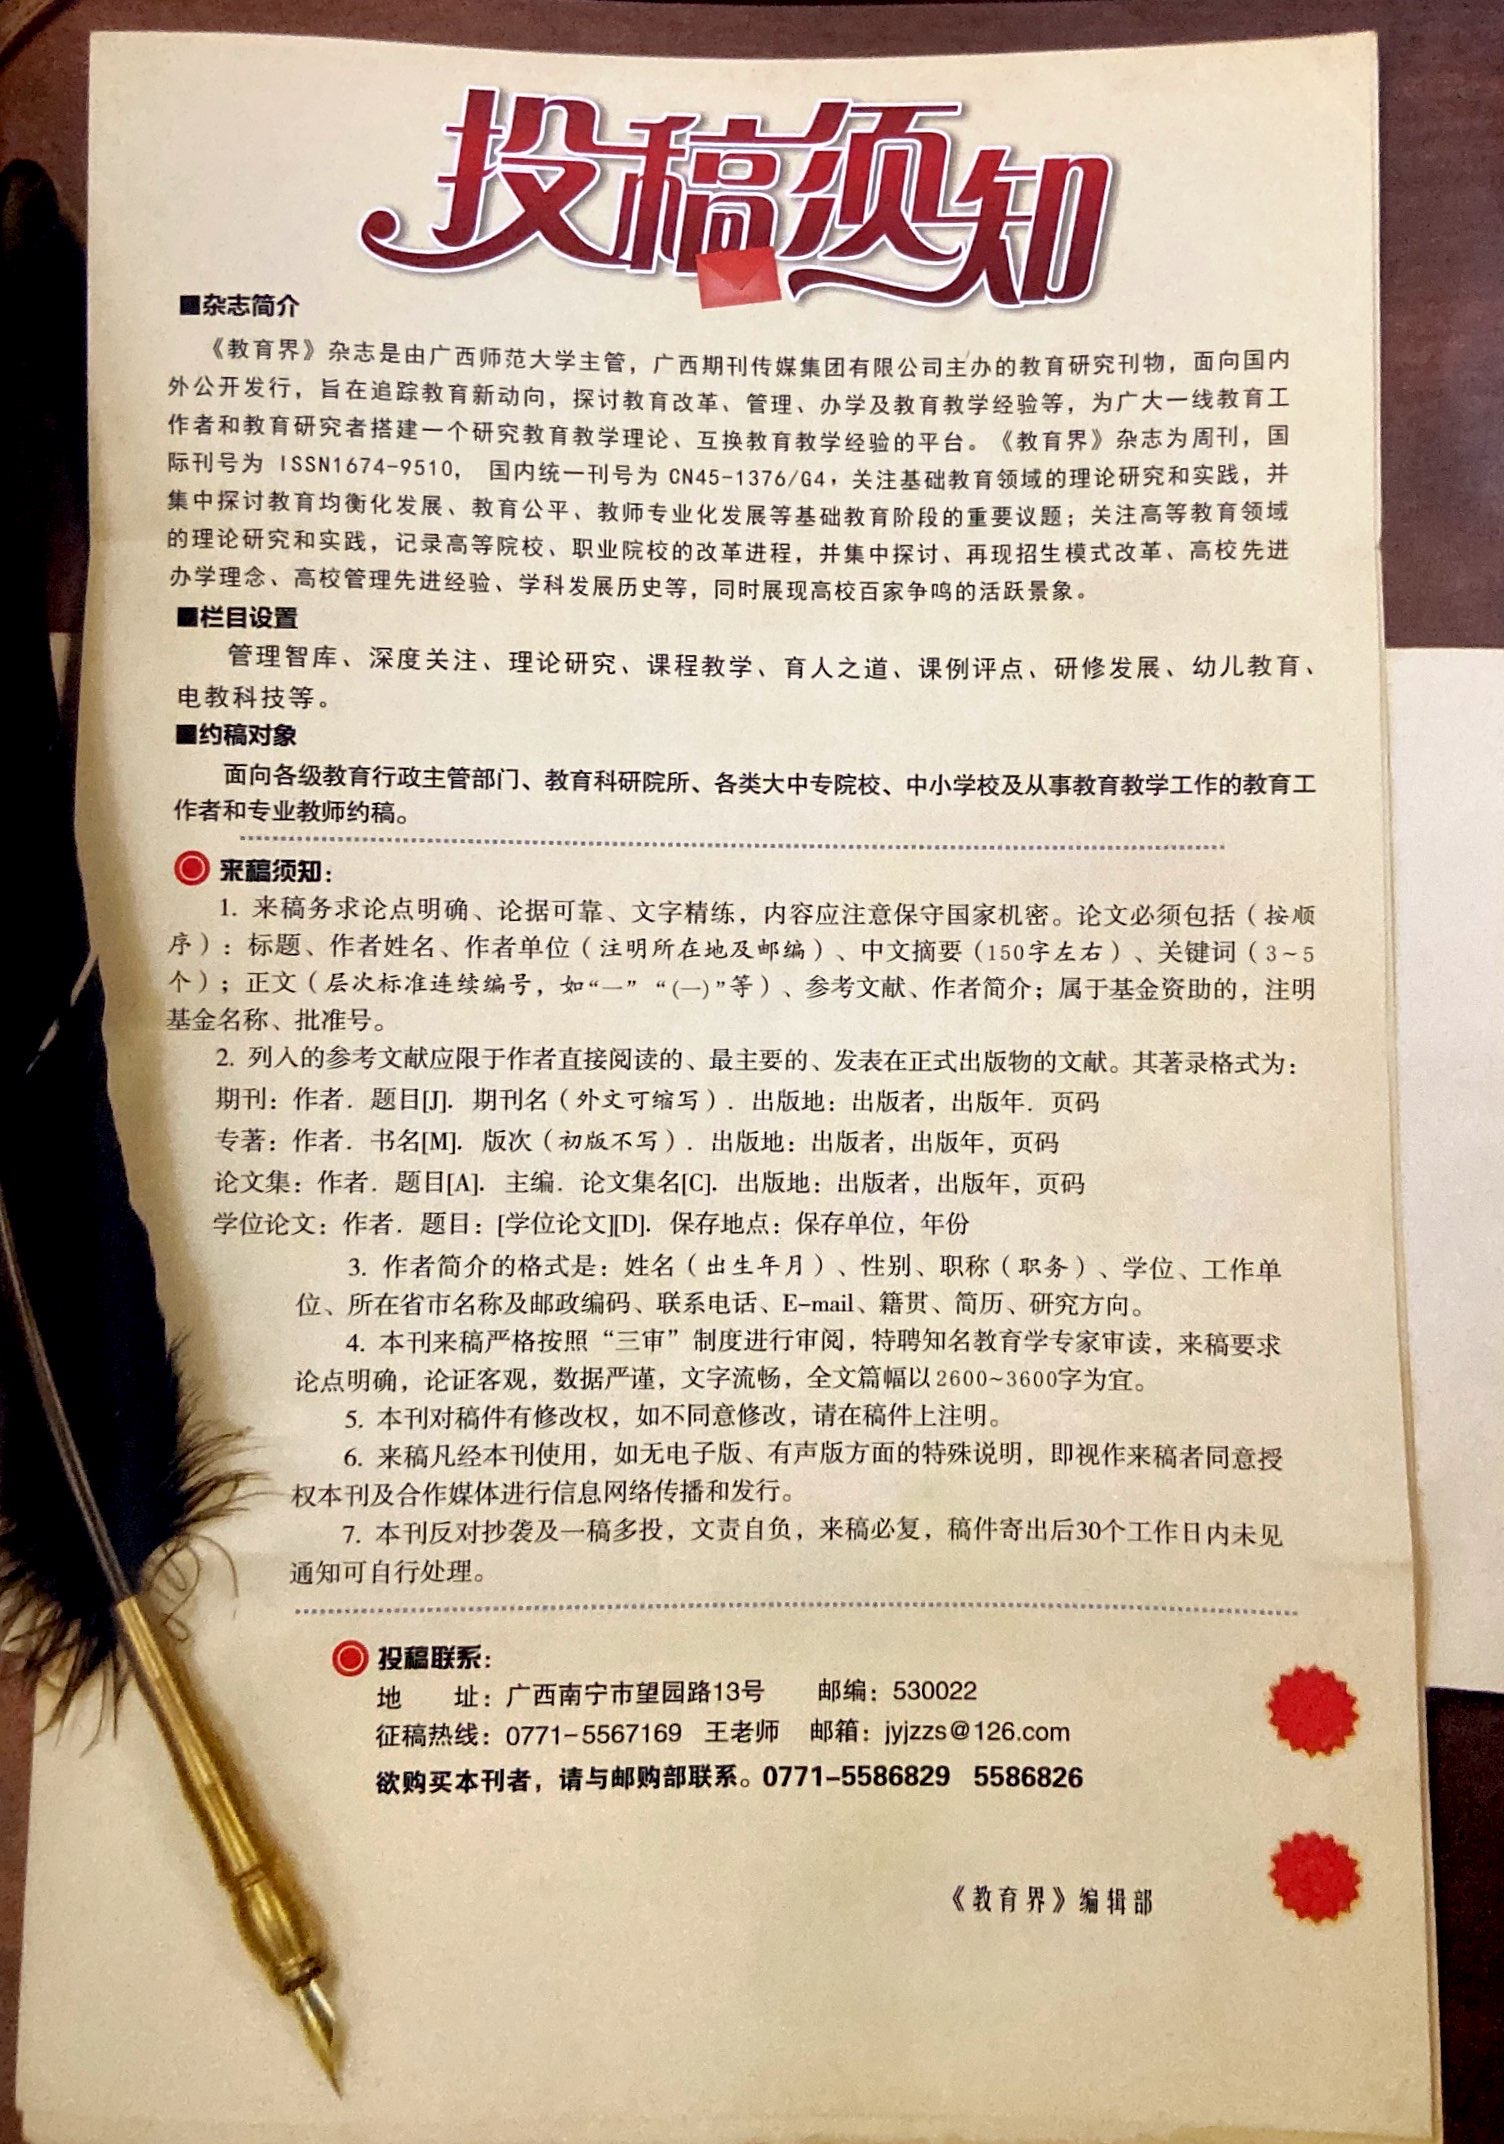 投稿须知
■杂志简介
《教育界》杂志是由广西师范大学主管，广西期刊传媒集团有限公司主办的教育研究刊物，面向国内
外公开发行，旨在追踪教育新动向，探讨教育改革、管理、办学及教育教学经验等，为广大一线教育工
作者和教育研究者搭建一个研究教育教学理论、互换教育教学经验的平台。《教育界》杂志为周刊，国
际刊号为 ISSN1674-9510， 国内统一刊号为 CN45-1376/G4，关注基础教育领域的理论研究和实践，并
集中探讨教育均衡化发展、教育公平、教师专业化发展等基础教育阶段的重要议题；关注高等教育领域
的理论研究和实践，记录高等院校、职业院校的改革进程，并集中探讨、再现招生模式改革、高校先进
办学理念、高校管理先进经验、学科发展历史等，同时展现高校百家争鸣的活跃景象。
■栏目设置
管理智库、深度关注、理论研究、课程教学、育人之道、课例评点、研修发展、幼儿教育、
电教科技等。
■约稿对象
面向各级教育行政主管部门、教育科研院所、各类大中专院校、中小学校及从事教育教学工作的教育工
作者和专业教师约稿。
来稿须知：
1. 来稿务求论点明确、论据可靠、文字精练，内容应注意保守国家机密。论文必须包括（按顺
序）：标题、作者姓名、作者单位（注明所在地及邮编）、中文摘要（150字左右）、关键词（3～5
个）；正文（层次标准连续编号，如“一”“(一)”等）、参考文献、作者简介；属于基金资助的，注明
基金名称、批准号。
2. 列入的参考文献应限于作者直接阅读的、最主要的、发表在正式出版物的文献。其著录格式为：
期刊：作者．题目[J]．期刊名（外文可缩写）．出版地：出版者，出版年．页码
专著：作者．书名[M]．版次（初版不写）．出版地：出版者，出版年，页码
论文集：作者．题目[A]．主编．论文集名[C]．出版地：出版者，出版年，页码
学位论文：作者．题目：[学位论文][D]．保存地点：保存单位，年份
3. 作者简介的格式是：姓名（出生年月）、性别、职称（职务）、学位、工作单
位、所在省市名称及邮政编码、联系电话、E-mail、籍贯、简历、研究方向。
4. 本刊来稿严格按照“三审”制度进行审阅，特聘知名教育学专家审读，来稿要求
论点明确，论证客观，数据严谨，文字流畅，全文篇幅以2600~3600字为宜。
5. 本刊对稿件有修改权，如不同意修改，请在稿件上注明。
6. 来稿凡经本刊使用，如无电子版、有声版方面的特殊说明，即视作来稿者同意授
权本刊及合作媒体进行信息网络传播和发行。
7. 本刊反对抄袭及一稿多投，文责自负，来稿必复，稿件寄出后30个工作日内未见
通知可自行处理。
投稿联系：
地　　址：广西南宁市望园路13号　　邮编：530022
征稿热线：0771-5567169 王老师 邮箱：jyjzzs@126.com
欲购买本刊者，请与邮购部联系。0771-5586829 5586826
《教育界》编辑部